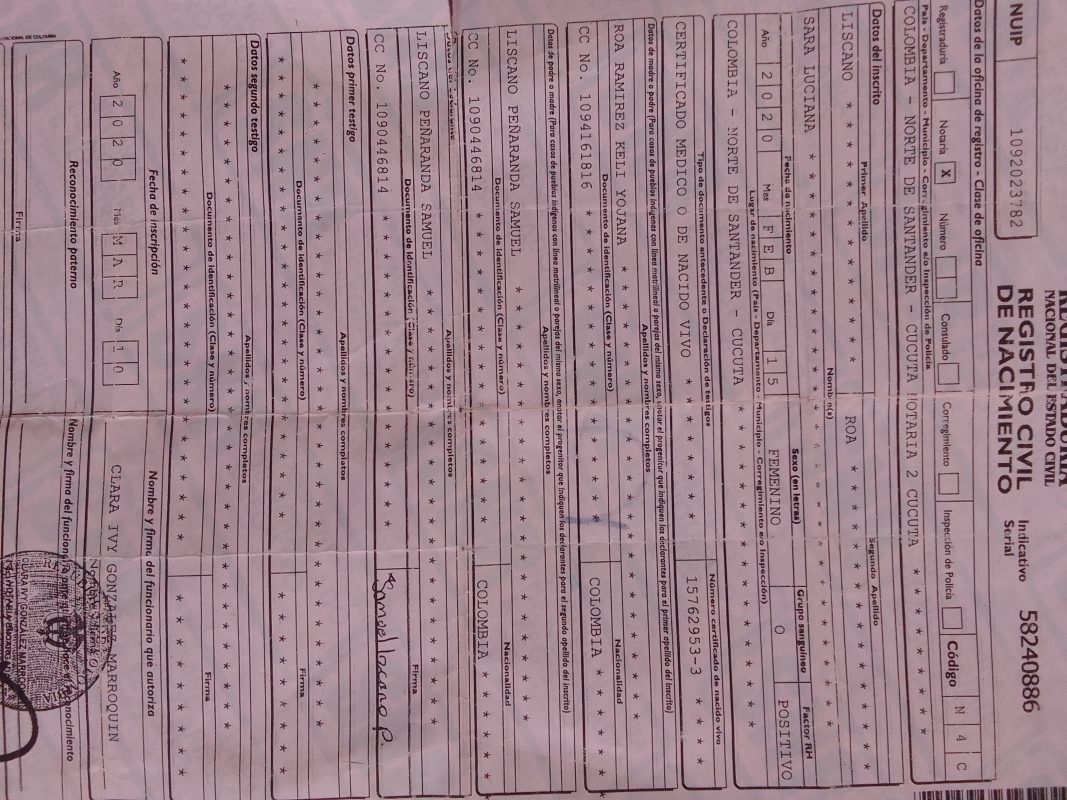 REGISTRADURIA
NACIONAL DEL ESTADO CIVIL
REGISTRO CIVIL
DE NACIMIENTO
NUIP 1092023782
Indicativo Serial 58240886
Datos de la oficina de registro - Clase de oficina
Registraduría Notaría X Número Consulado Corregimiento Inspección de Policía Código N 4 C
País - Departamento - Municipio - Corregimiento e/o Inspección de Policía
COLOMBIA - NORTE DE SANTANDER - CUCUTA NOTARIA 2 CUCUTA * * * * * * * *
Datos del inscrito
Primer Apellido Segundo Apellido
LISCANO * * * * * * * * * * * * ROA * * * * * * * * * * *
Nombre(s)
SARA LUCIANA * * * * * * * * * * * * * * * * * * * * * * * *
Fecha de nacimiento Sexo (en letras) Grupo sanguíneo Factor RH
Año 2020 Mes FEB Día 15 FEMENINO O POSITIVO
Lugar de nacimiento (País - Departamento - Municipio - Corregimiento e/o Inspección)
COLOMBIA - NORTE DE SANTANDER - CUCUTA * * * * * * * * * * * * * *
Tipo de documento antecedente o Declaración de testigos Número certificado de nacido vivo
CERTIFICADO MEDICO O DE NACIDO VIVO * * * * * * * 15762953-3 * * *
Datos de madre o padre (Para casos de pueblos indígenas con línea matrilineal o parejas del mismo sexo, anotar el progenitor que indiquen los declarantes para el primer apellido del inscrito)
Apellidos y nombres completos
ROA RAMIREZ KELI YOJANA * * * * * * * * * * * * * * * * * * * *
Documento de identificación (Clase y número) Nacionalidad
CC No. 1094161816 * * * * * * * * * * * * COLOMBIA * * * * *
Datos de padre o madre (Para casos de pueblos indígenas con línea matrilineal o parejas del mismo sexo, anotar el progenitor que indiquen los declarantes para el segundo apellido del inscrito)
Apellidos y nombres completos
LISCANO PEÑARANDA SAMUEL * * * * * * * * * * * * * * * * * * *
Documento de identificación (Clase y número) Nacionalidad
CC No. 1090446814 * * * * * * * * * * * * COLOMBIA * * * * *
Apellidos y nombres completos
LISCANO PEÑARANDA SAMUEL * * * * * * * * * * * * * * * * * * *
Documento de identificación (Clase y número) Firma
CC No. 1090446814 * * * * * * * * * * * * Samuel Liscano P.
Datos primer testigo
Apellidos y nombres completos
* * * * * * * * * * * * * * * * * * * * * * * * * * * *
Documento de identificación (Clase y número) Firma
* * * * * * * * * * * * * * * * * * * * * * * *
Datos segundo testigo
Apellidos y nombres completos
* * * * * * * * * * * * * * * * * * * * * * * * * * * *
Documento de identificación (Clase y número) Firma
* * * * * * * * * * * * * * * * * * * * * * * *
Fecha de inscripción Nombre y firma del funcionario que autoriza
Año 2020 Mes MAR Día 10 CLARA IVY GONZALEZ MARROQUIN
Reconocimiento paterno Nombre y firma del funcionario ante quien se hace el reconocimiento
Firma
CLARA IVY GONZALEZ MARROQUIN